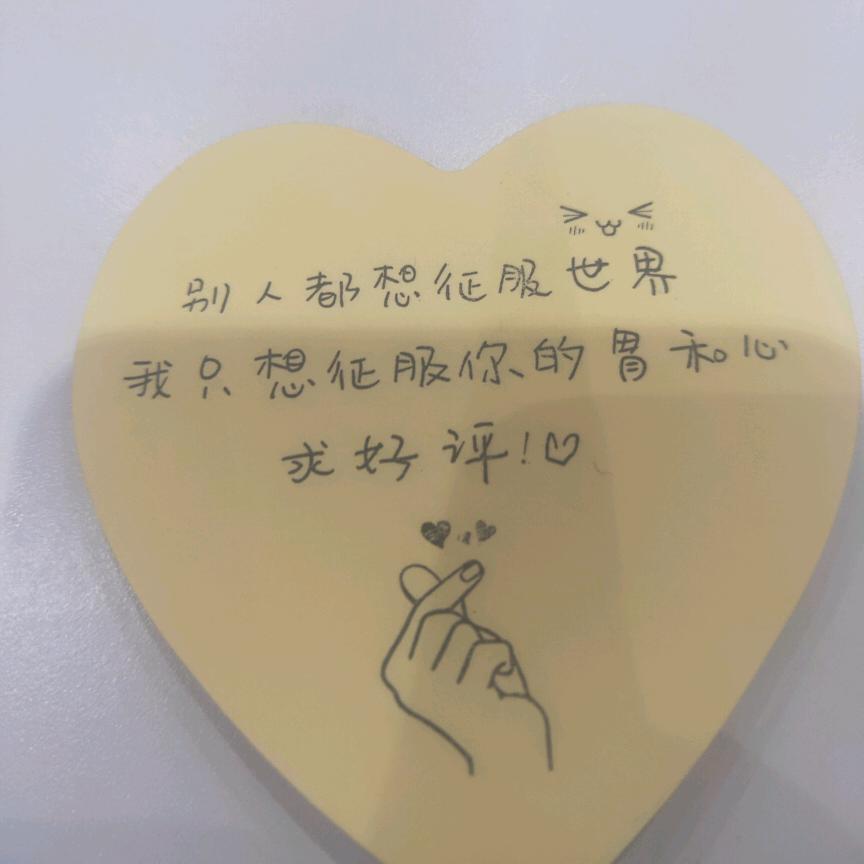 别人都想征服世界
我只想征服你的胃和心
求好评!♡